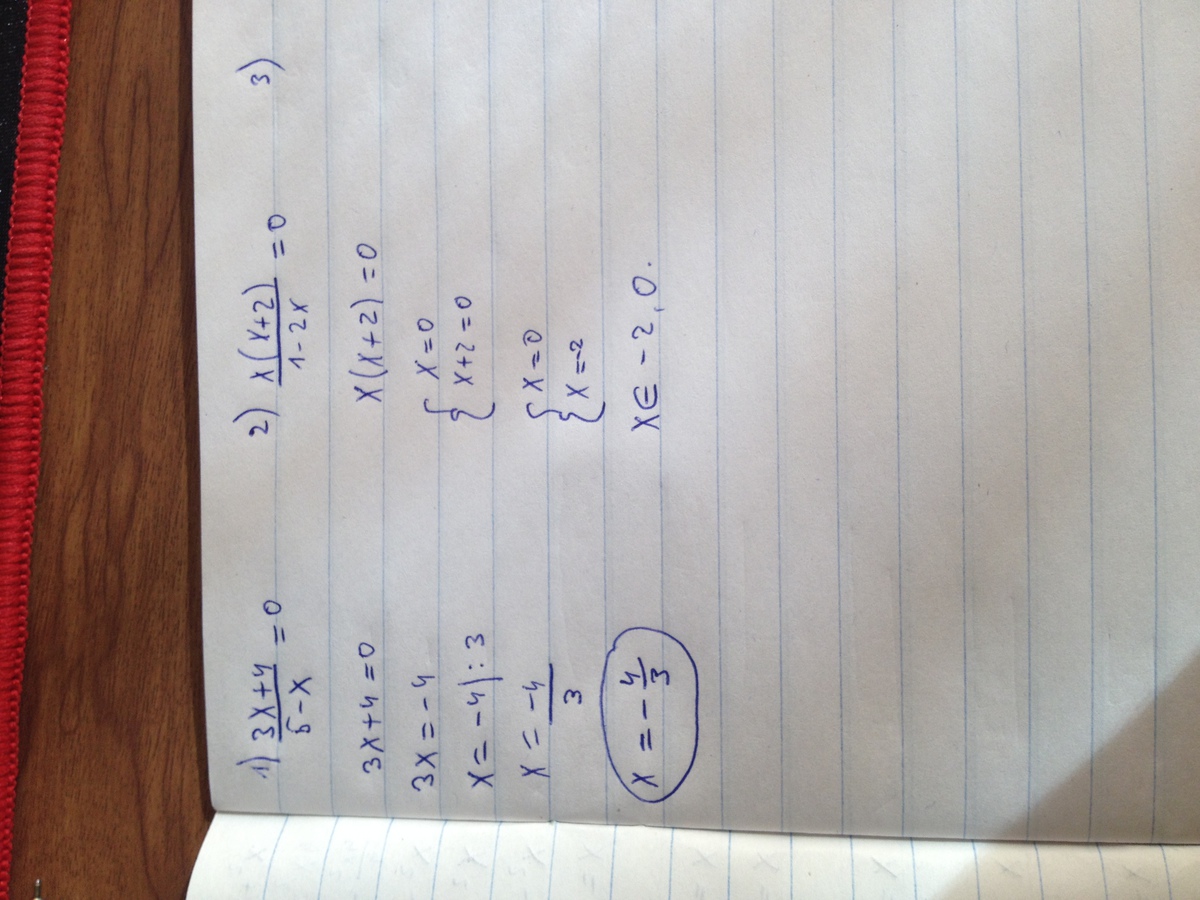 1) 3x+4
5-x =0
3x+4=0
3x=-4
x=-4|:3
x=-4
3
x=-4
3
2) x(x+2)
1-2x =0
x(x+2)=0
{ x=0
{ x+2=0
{ x=0
{ x=-2
x∈-2,0.
3)